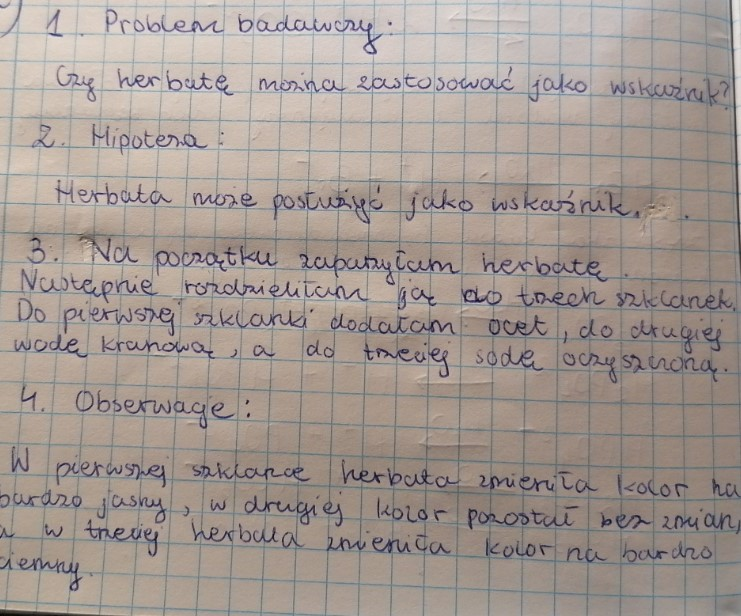 1. Problem badawczy:
Czy herbatę można zastosować jako wskaźnik?
2. Hipoteza:
Herbata może posłużyć jako wskaźnik.
3. Na początku zaparzyłam herbatę.
Następnie rozdzieliłam ją do trzech szklanek.
Do pierwszej szklanki dodałam ocet, do drugiej
wodę kranową, a do trzeciej sodę oczyszczoną.
4. Obserwacje:
W pierwszej szklance herbata zmieniła kolor na
bardzo jasny, w drugiej kolor pozostał bez zmian,
a w trzeciej herbata zmieniła kolor na bardzo
ciemny.